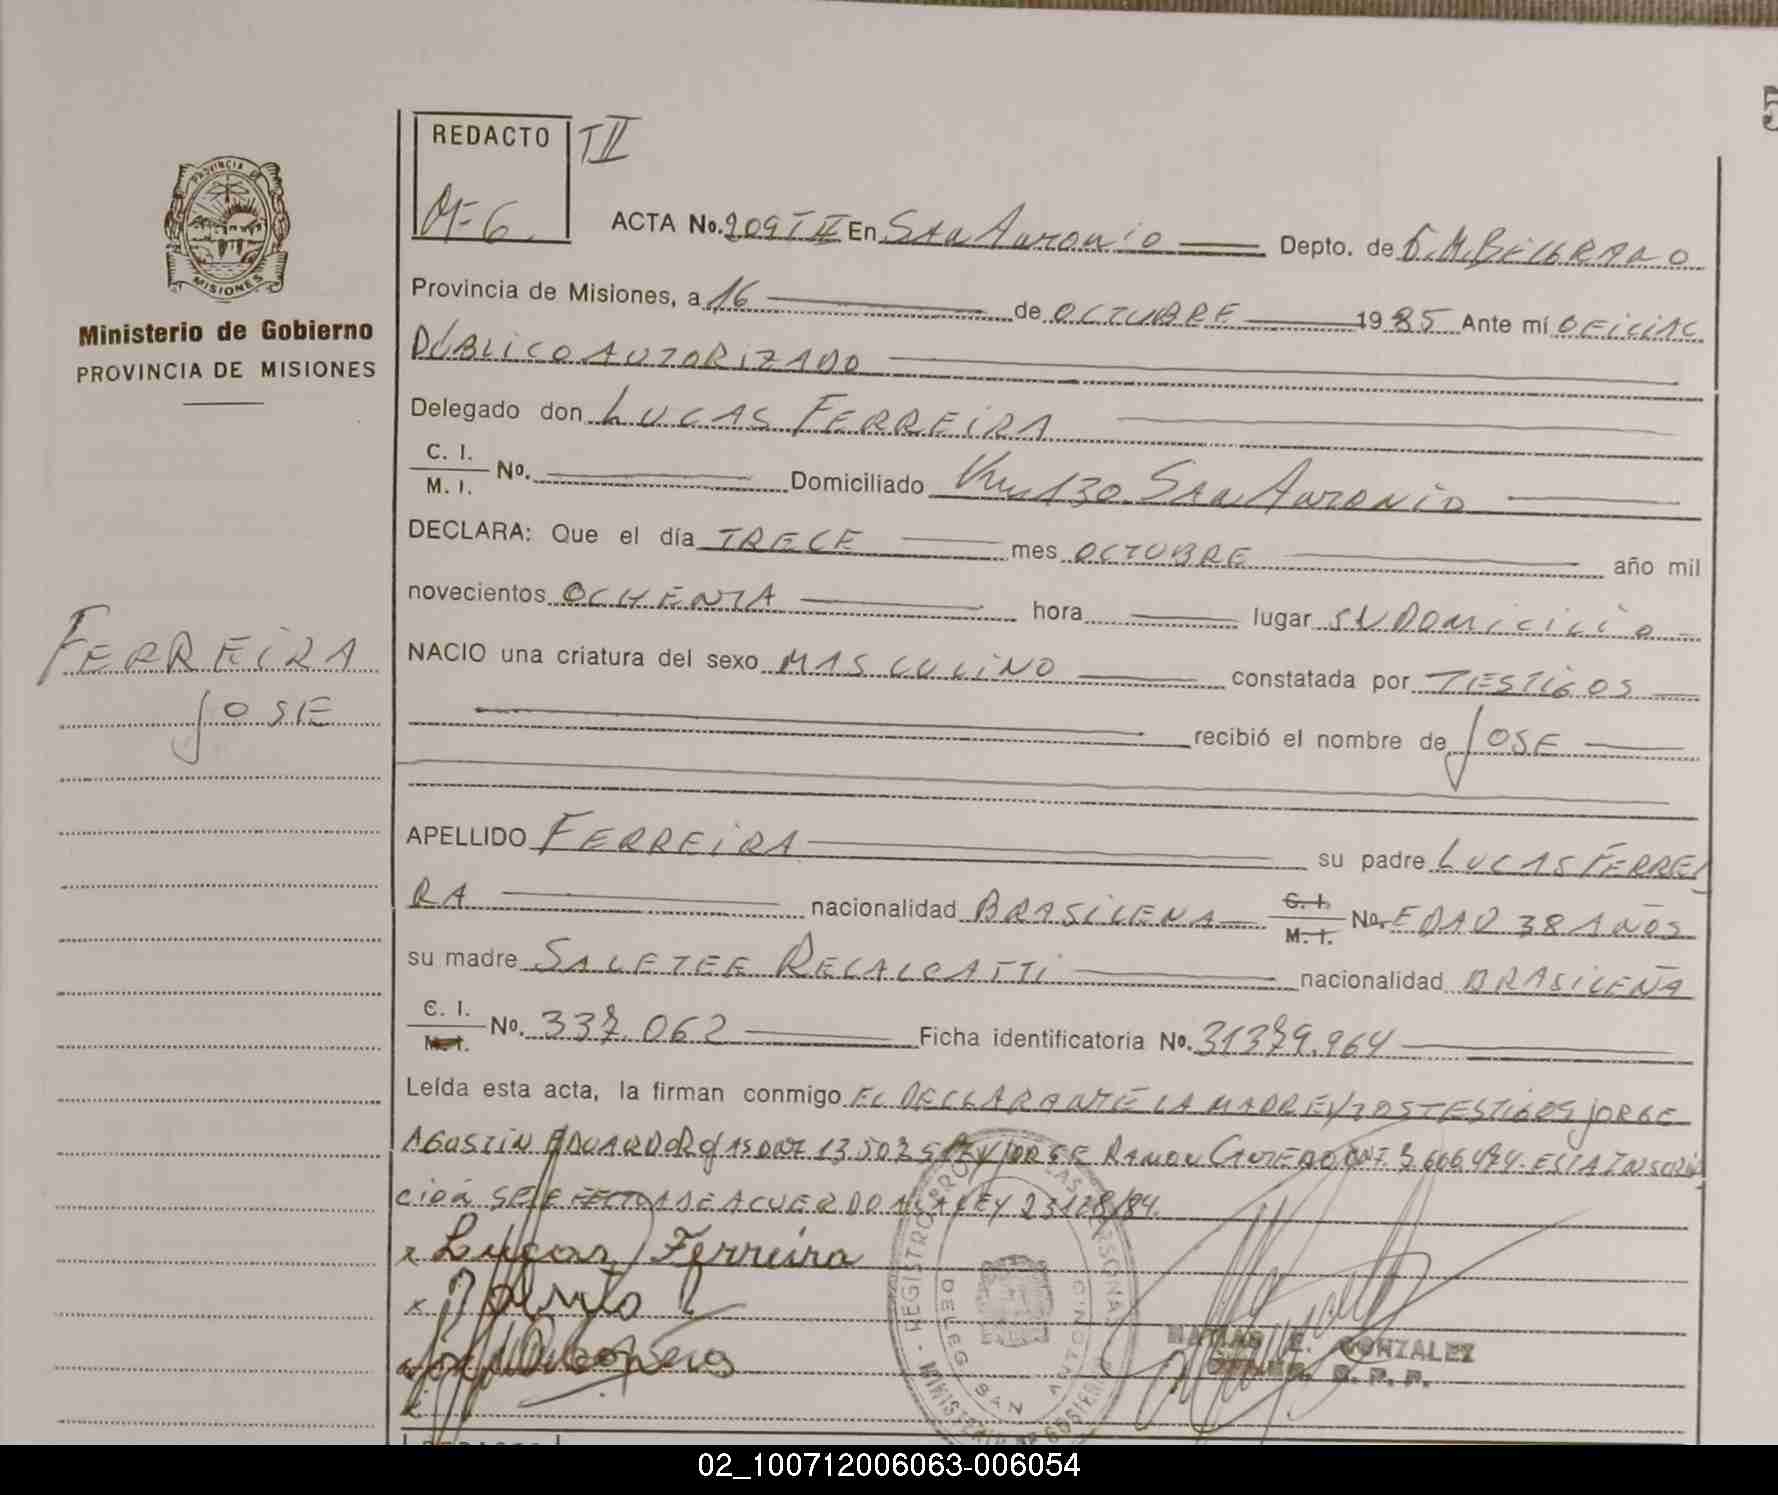 5
REDACTO TII
OF-6.
ACTA No. 209 TII En San Antonio Depto. de G.M. BELGRANO
PROVINCIA DE MISIONES
Ministerio de Gobierno
PROVINCIA DE MISIONES
Provincia de Misiones, a 16 de OCTUBRE 1985 Ante mí OFICIAL
PÚBLICO AUTORIZADO
Delegado don LUCAS FERREIRA
C. I.
M. I. No. Domiciliado Km 130 San Antonio
DECLARA: Que el día TRECE mes OCTUBRE año mil
novecientos OCHENTA hora lugar SU DOMICILIO
FERREIRA
JOSE
NACIO una criatura del sexo MASCULINO constatada por TESTIGOS
recibió el nombre de JOSE
APELLIDO FERREIRA su padre LUCAS FERREI
RA nacionalidad BRASILENA C. I. M. I. No. EDAD 38 AÑOS
su madre SALETEE RECALCATTI nacionalidad BRASILEÑA
C. I.
M. I. No. 337.062 Ficha identificatoria No. 31379.964
Leída esta acta, la firman conmigo EL DECLARANTE LA MADRE Y LOS TESTIGOS JORGE
AGUSTIN EDUARDO 13.503 Y JORGE RAMON ESTA INSCRIP
CIÓN SE EFECTUA DE ACUERDO A LA LEY 23128/84.
x Lucas Ferreira
x
MATIAS E. GONZALEZ
REGISTRO PERSONAS
DELEG. SAN ANTONIO
MINISTERIO DE GOBIERNO
02_100712006063-006054